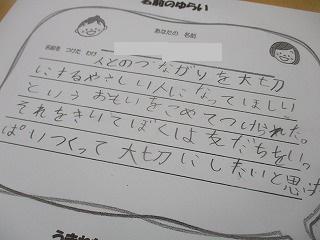 名前のゆらい
あなたの 名前
名前を つけた わけ
人とのつながりを大切
にするやさしい人になってほしい
というおもいをこめてつけられた。
それをきいてぼくは友だちをいっ
ぱいつくって大切にしたいと思